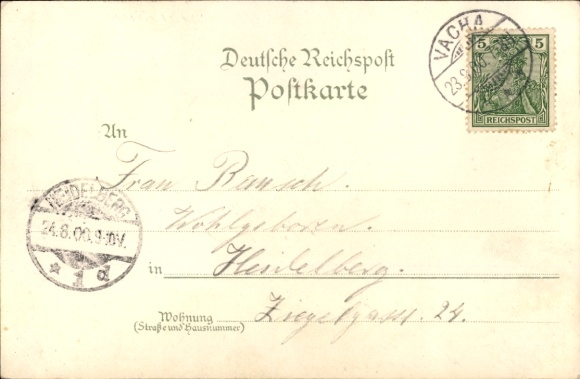 VACHA
23.8.00
5 5
REICHSPOST
Deutsche Reichspost
Postkarte
An
Frau Bausch.
Wohlgeboren.
HEIDELBERG
24.8.00.9-10V.
* 1 d
in Heidelberg.
Wohnung Ziegelgasse 24.
(Straße und Hausnummer)